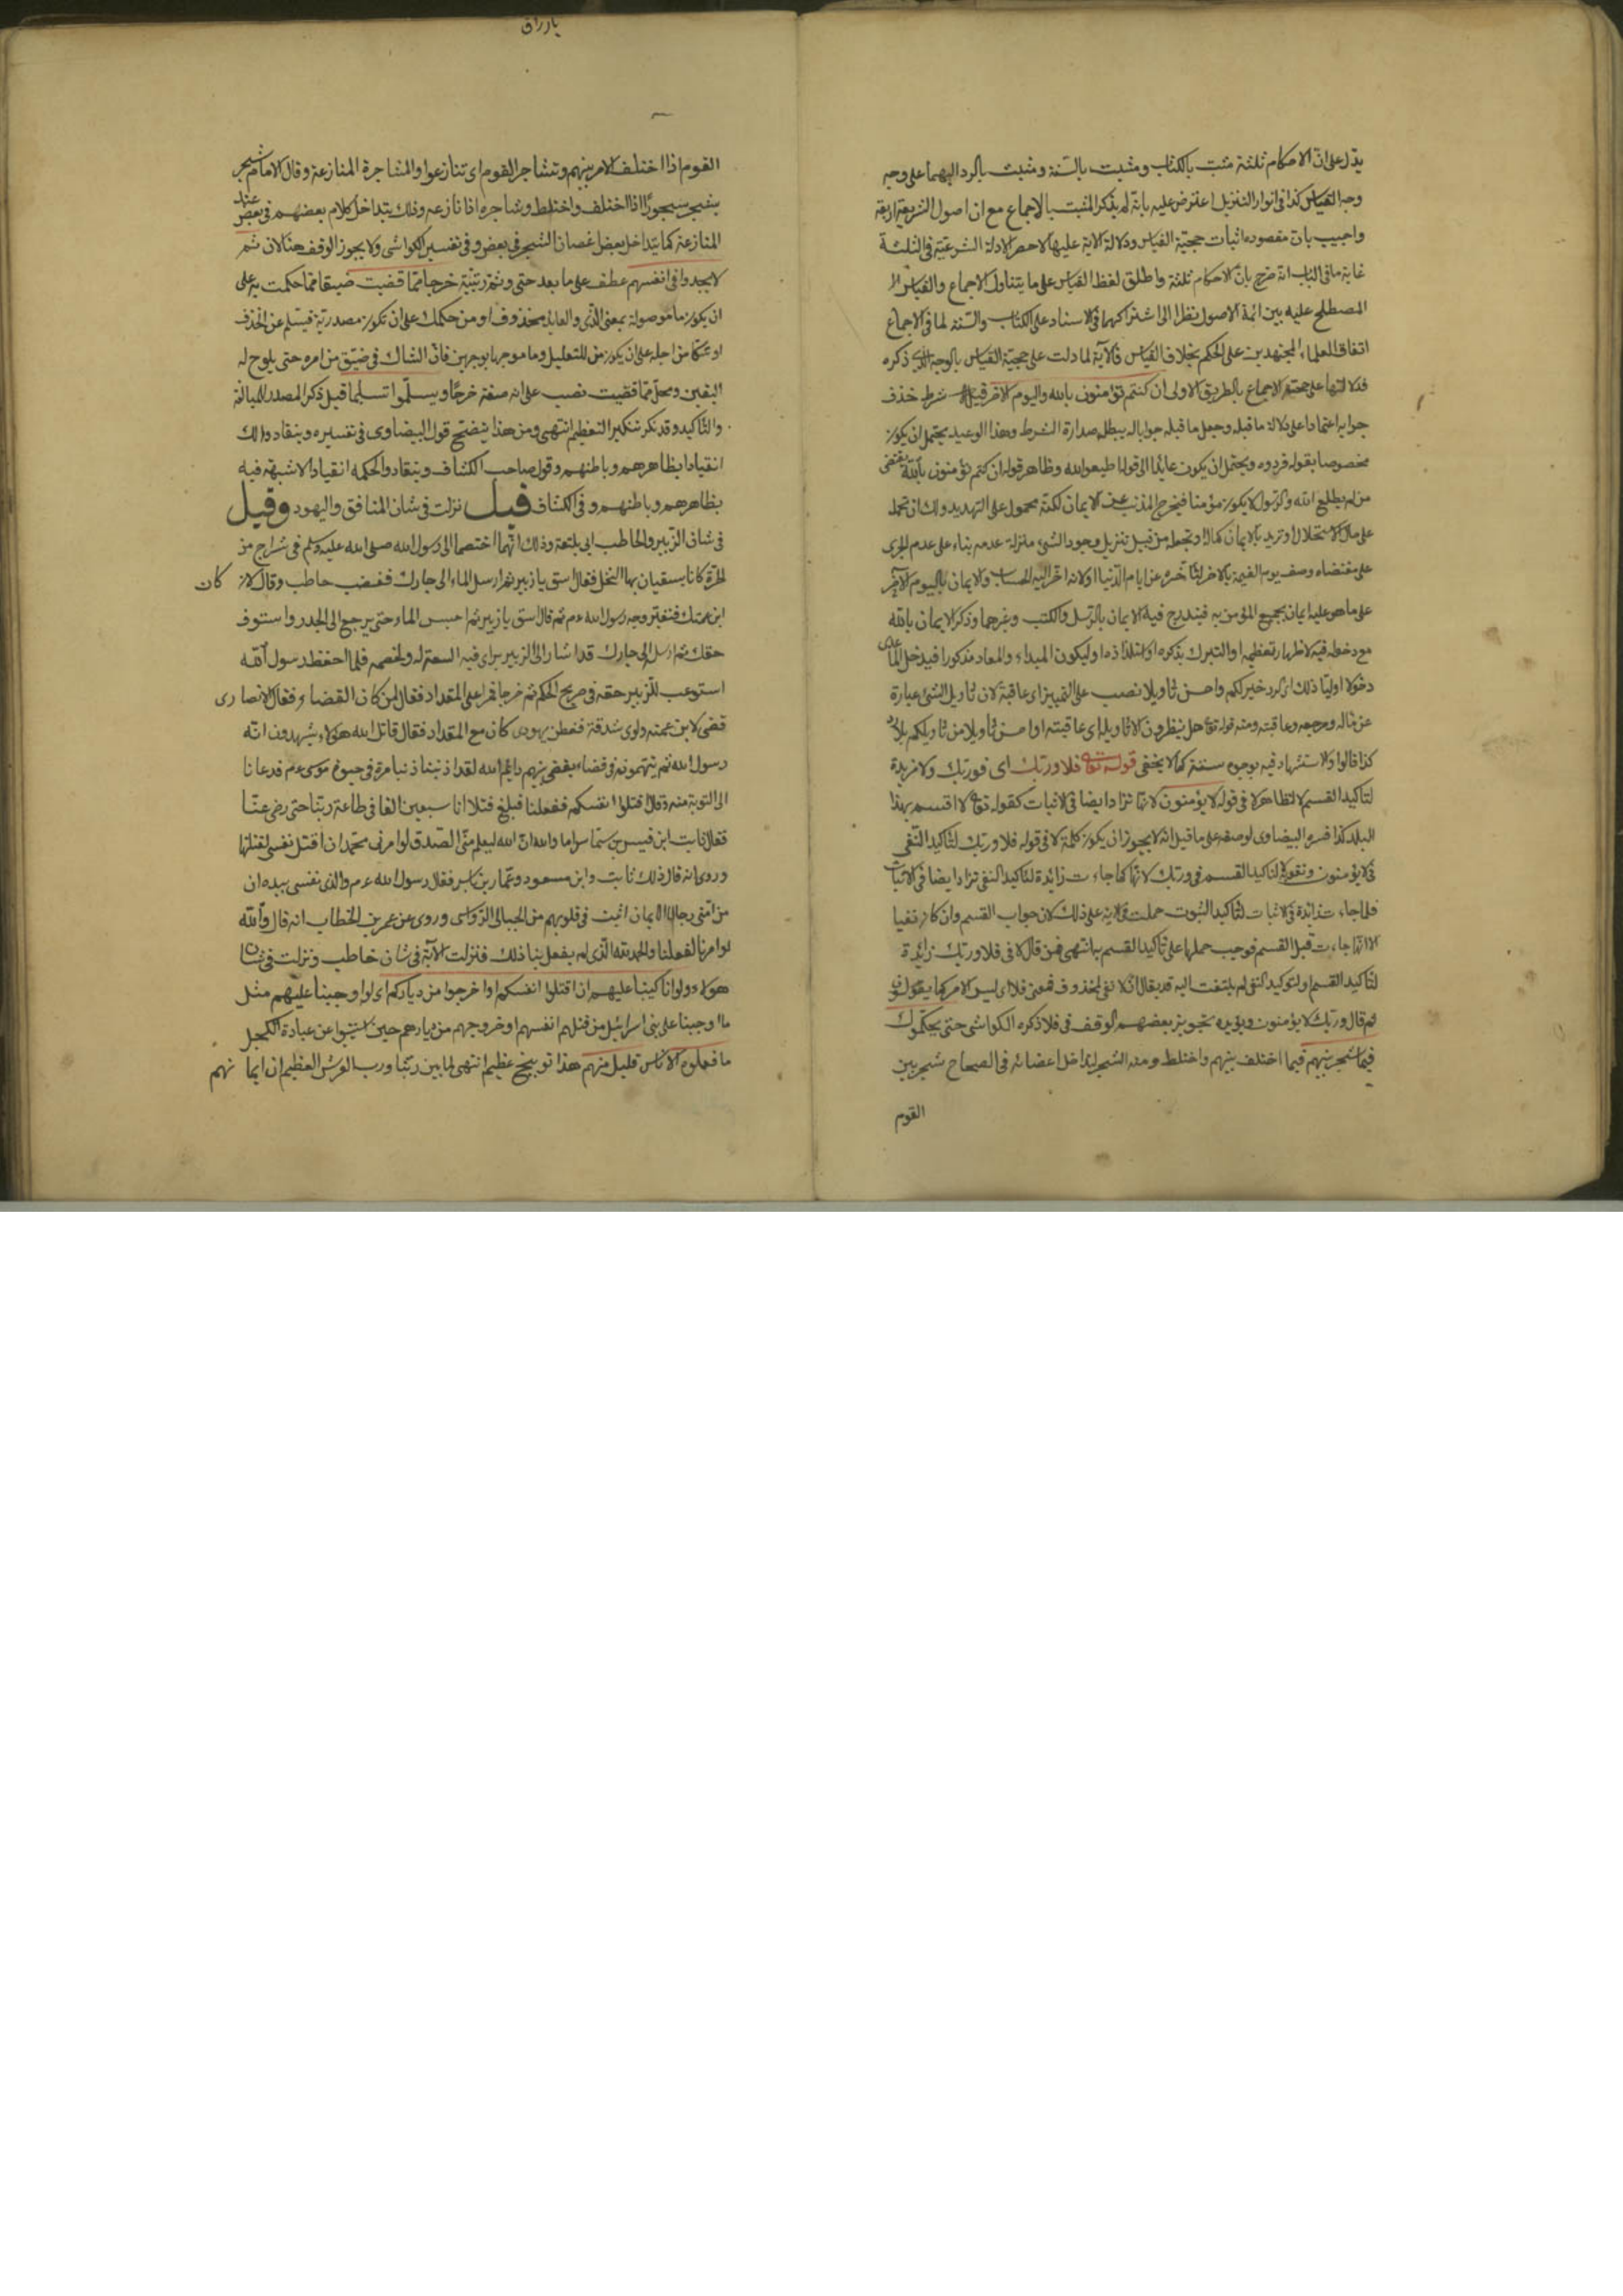 يدل على ان الاحكام ثلثة مثبت بالكتاب ومثبت بالسنة ومثبت بالرد اليهما على وجه
وجه القياس كذا في انوار التنزيل اعترض عليه بانه لم يذكر المثبت بالاجماع مع ان اصول الشريعة اربعة
واجيب بان مقصوده اثبات حجية القياس ودلالة الاية عليها لا حصر الادلة الشرعية في الثلثة
غاية ما في الباب انه صرح بان الاحكام ثلثة واطلق لفظ القياس على ما يتناول الاجماع والقياس
المصطلح عليه بين ائمة الاصول نظرا الى اشتراكهما في الاسناد على الكتاب والسنة لما في الاجماع
اتفاق العلماء المجتهدين على الحكم بخلاف القياس فالآية لما دلت على حجية القياس بالوجه الذي ذكره
فدلالتها على حجية الاجماع بالطريق الاولى ان كنتم تؤمنون بالله واليوم الاخر قيل شرط حذف
جوابه اعتمادا على دلالة ما قبله وجعل ما قبله جوابا له يبطل صدارة الشرط وهذا الوعيد يحتمل ان يكون
مخصوصا بقوله فردوه ويحتمل ان يكون عائدا الى قوله اطيعوا الله وظاهر قوله ان كنتم تؤمنون بالله يقتضي
من لم يطع الله والرسول لا يكون مؤمنا فيخرج المذنب عن الايمان لكنه محمول على التهديد ولك ان تحمله
على الاستحلال او تريد بالايمان كماله وتجعله من قبيل تنزيل وجود الشئ منزلة عدمه بناء على عدم الجرى
على مقتضاه وصف يوم القيمة بالاخر لتأخره عن ايام الدنيا او لانه اخر اليه الحساب والايمان باليوم الآخر
على ما هو عليه ايمان بجميع المؤمن به فيندرج فيه الايمان بالرسل والكتب وغيرهما وذكر الايمان بالله
مع دخوله فيه لاظهار تعظيمه او التبرك بذكره او استلذاذه او ليكون المبداء والمعاد مذكورا فيدخل الماعدى
دخولا اوليا ذلك اي الرد خير لكم واحسن تأويلا نصب على التمييز اي عاقبة لان تأويل الشئ عبارة
عن مآله ومرجعه وعاقبته ومنه قوله تع هل ينظرون الا تأويله اي عاقبته او احسن تأويلا من تأويلكم بلا رد
كذا قالوا ولا استشهاد فيه بوجوه ستة كما لا يخفى قوله تع فلا وربك اى فوربك ولا مزيدة
لتأكيد القسم لا لتظاهر لا في قوله لا يؤمنون لانها تزاد ايضا في الاثبات كقوله تع لا اقسم بهذا
البلد كذا فسره البيضاوى لوصفه على ما قيل انه لا يجوز ان يكون كلمة لا في قوله فلا وربك لتأكيد النفى
في لا يؤمنون ونقول لتاكيد القسم في وربك لانها كما جاءت زائدة لتأكيد النفى تزاد ايضا في الاثبات
فلما جاءت زائدة في الاثبات لتأكيد الثبوت حملت في الاية على ذلك لان جواب القسم وان كان نفيا
الا انها جاءت قبل القسم فوجب حملها على تأكيد القسم به انتهى فمن قال لا في فلا وربك زائدة
لتأكيد القسم او لتوكيد النفى لم يلتفت اليه قد يقال ان لا نفى لمحذوف فمعنى فلا اى ليس الامر كما يقولون
ثم قال وربك لا يؤمنون ويؤيده تجويز بعضهم الوقف في فلا ذكره الكواشى حتى يحكموك
فيما شجر بينهم فيما اختلف بينهم واختلط ومنه الشجر لتداخل اغصانه في الصحاح شجر بين
القوم
يا رزاق
القوم اذا اختلف الامر بينهم وتشاجر القوم اي تنازعوا والمشاجرة المنازعة وقال الامام شجر
يشجر شجورا اذا اختلف واختلط وشاجره اذا نازعه وذلك يتداخل كلام بعضهم في بعض عند
المنازعة كما يتداخل بعض اغصان الشجر في بعض وفي تفسير الكواشى ولا يجوز الوقف هنا لان ثم
لا يجدوا في انفسهم عطف على ما بعد حتى وثم رتبية خرجا مما قضيت ضيقا مما حكمت به على
ان يكون ما موصولة بمعنى الذي والعائد محذوف او من حكمك على ان تكون مصدرية فيسلم عن الحذف
او شكا من اجله على ان يكون من للتعليل وما موجها بوجهين فان الشاك في ضيق من امره حتى يلوح له
اليقين ومحل مما قضيت نصب على انه صفة حرجا ويسلموا تسليما قيل ذكر المصدر للمبالغة
والتأكيد وقد نكر تنكير التعظيم انتهى ومن هذا يتضح قول البيضاوى في تفسيره وينقادوا لك
انقيادا بظاهرهم وباطنهم وقول صاحب الكشاف وينقادوا لحكمه انقيادا لا شبهة فيه
بظاهرهم وباطنهم وفي الكشاف قيل نزلت في شان المنافق واليهود وقيل
في شان الزبير والحاطب ابي بلتعة وذلك انهما اختصما الى رسول الله صلى الله عليه وسلم في شراج من
الحرة كانا يسقيان بها النخل فقال اسق يا زبير ثم ارسل الماء الى جارك فغضب حاطب وقال لان كان
ابن عمتك فتغير وجه رسول الله ءم ثم قال اسق يا زبير ثم احبس الماء حتى يرجع الى الجدر واستوف
حقك ثم ارسل الى جارك قد اشار الى الزبير براى فيه السعة له ولخصمه فلما احفظ رسول الله
استوعب للزبير حقه في صريح الحكم ثم خرجا فمرا على المقداد فقال لمن كان القضاء فقال الانصارى
قضى لابن عمته ولوى شدقه ففطن يهودى كان مع المقداد فقال قاتل الله هؤلاء يشهدون انه
رسول الله ثم يتهمونه في قضاء يقضى بينهم وايم الله لقد اذنبنا ذنبا مرة في حيوة موسى ءم فدعانا
الى التوبة منه وقال اقتلوا انفسكم ففعلنا فبلغ قتلانا سبعين الفا في طاعة ربنا حتى رضى عنا
فقال ثابت ابن قيس بن شماس اما والله ان الله ليعلم منى الصدق لو امرنى محمد ان اقتل نفسى لقتلتها
وروى انه قال ذلك ثابت وابن مسعود وعمار بن ياسر فقال رسول الله ءم والذى نفسى بيده ان
من امتى رجالا الايمان اثبت في قلوبهم من الجبال الرواسى وروى عن عمر بن الخطاب انه قال والله
لو امرنا لفعلنا والحمد لله الذى لم يفعل بنا ذلك فنزلت الآية في شان خاطب ونزلت في شان
هؤلاء ولو انا كتبنا عليهم ان اقتلوا انفسكم او اخرجوا من دياركم اى لو اوجبنا عليهم مثل
ما اوجبنا على بنى اسرائيل من قتلهم انفسهم او خروجهم من ديارهم حين استتيبوا عن عبادة العجل
ما فعلوه الا ناس قليل منهم هذا توبيخ عظيم انتهى لما بين ربنا ورب العرش العظيم ان ايمانهم